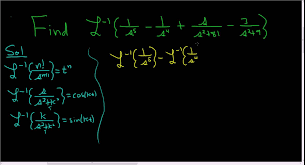 Find ℒ⁻¹{1/s⁵ - 1/s⁴ + s/(s²+81) - 3/(s²+9)}
Sol
ℒ⁻¹{n!/sⁿ⁺¹} = tⁿ
ℒ⁻¹{s/(s²+k²)} = cos(kt)
ℒ⁻¹{k/(s²+k²)} = sin(kt)
ℒ⁻¹{1/s⁵} - ℒ⁻¹{1/s⁴